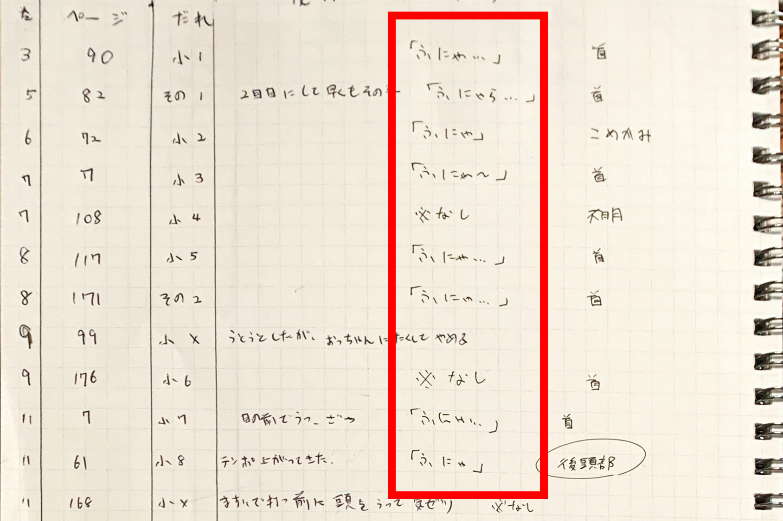 ページ だれ
3 90 小1 「ふにゃ…」 首
5 82 その1 2日目にして早くもその 「ふにゃら…」 首
6 72 小2 「ふにゃ」 こめかみ
7 7 小3 「ふにゃ〜」 首
7 108 小4 ※なし
8 117 小5 「ふにゃ…」 首
8 171 その2 「ふにゃ…」 首
9 99 小× うとうとしたが、おっちゃんにたくして やめる
9 176 小6 ※なし 首
11 7 小7 目の前でうつ 「ふにゃ…」 首
11 61 小8 テンポ上がってきた. 「ふにゃ」 後頭部
11 168 小× 前に 頭をうって 気ぜつ ※なし